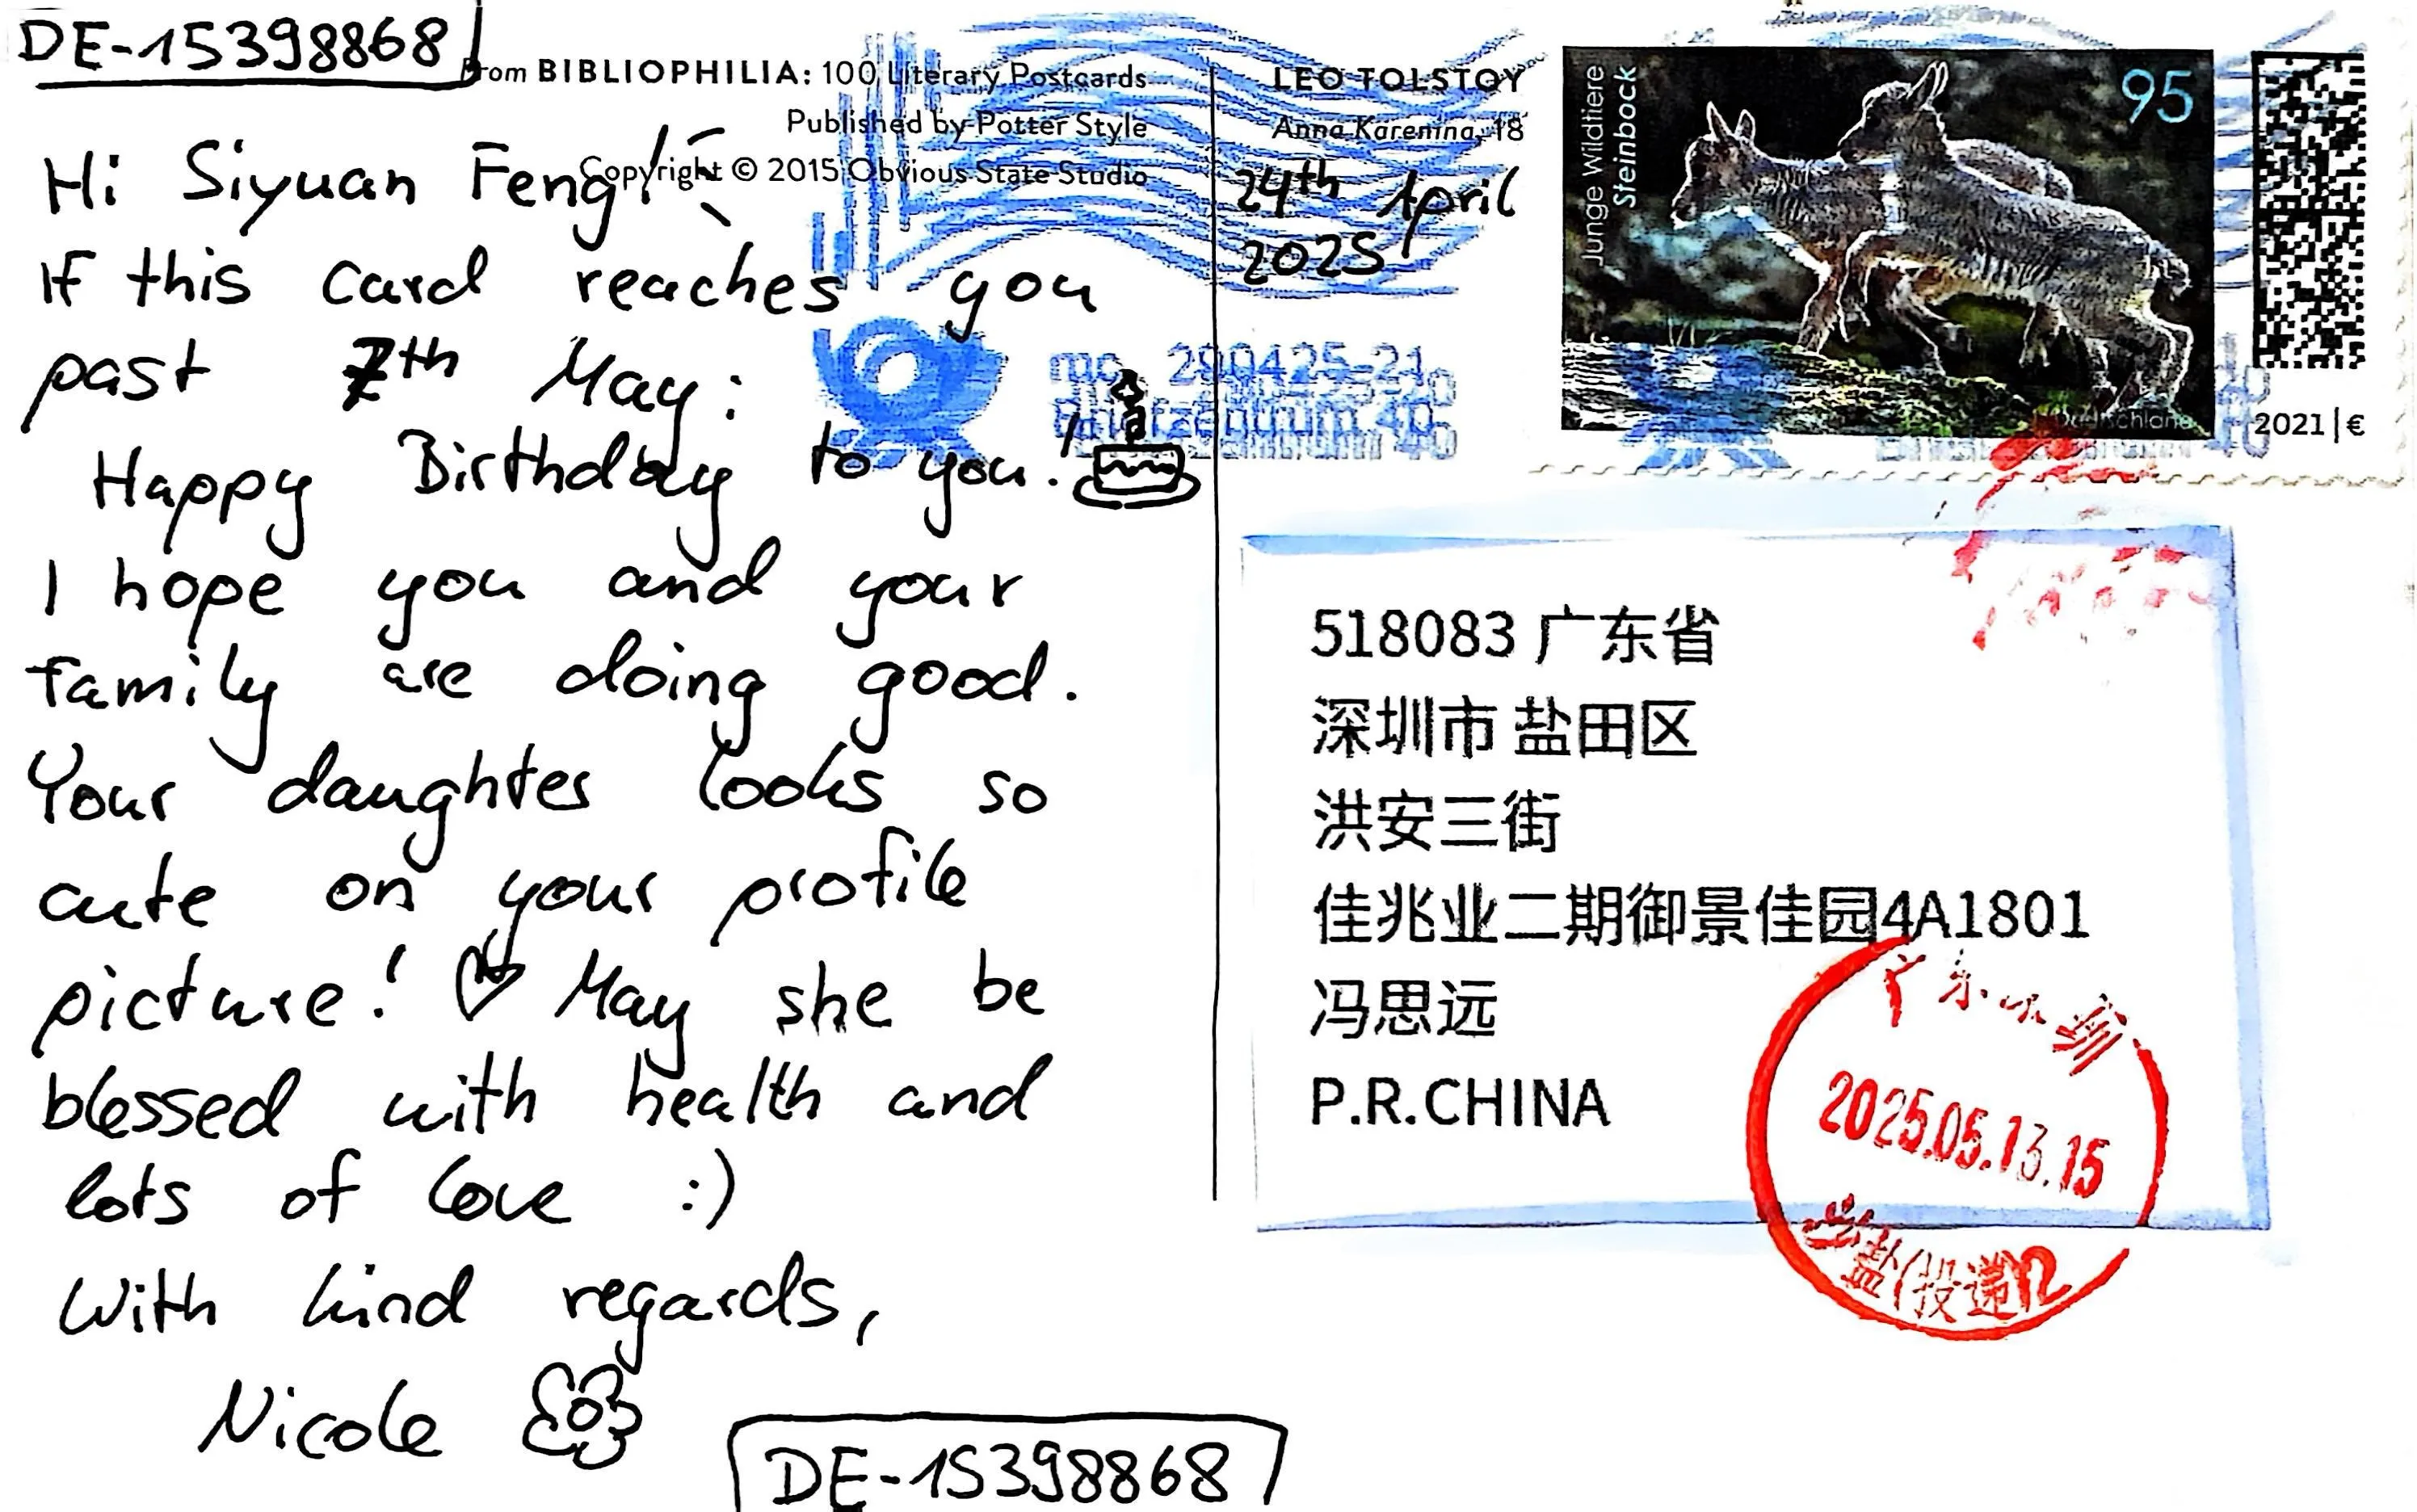 DE-15398868
From BIBLIOPHILIA: 100 Literary Postcards
Published by Potter Style
Copyright © 2015 Obvious State Studio
Hi Siyuan Feng!
If this card reaches you
past 7th May:
Happy Birthday to you!
I hope you and your
family are doing good.
Your daughter looks so
cute on your profile
picture! ♡ May she be
blessed with health and
lots of love :)
With kind regards,
Nicole
DE-15398868
LEO TOLSTOY
Anna Karenina, 18
24th April
2025
290425-21
Briefzentrum 40
Junge Wildtiere
Steinbock
95
Deutschland
2021 | €
518083 广东省
深圳市 盐田区
洪安三街
佳兆业二期御景佳园4A1801
冯思远
P.R.CHINA
广东
2025.05.13.15
盐(投递